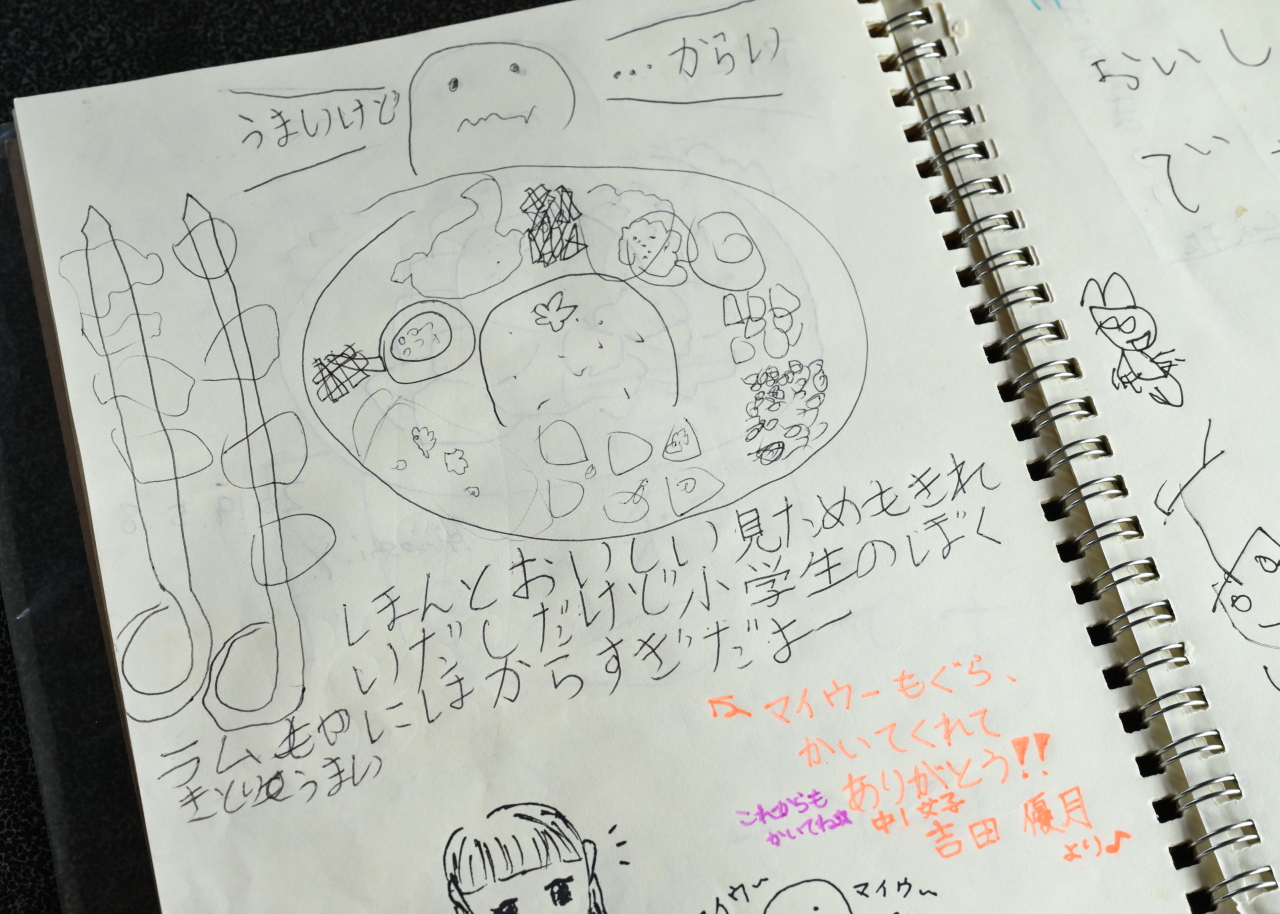 うまいけど
…からい
しほんとおいしい見ためもきれ
いだしだけど小学生のじぼく
にはからすぎだよー
ラムもや
きとりもうまい
マイウーもぐら、
かいてくれて
ありがとう!!
これからも
かいてね☆
中1女子
吉田 優月
より♪
マイウ〜
マイウ〜
おいし
で